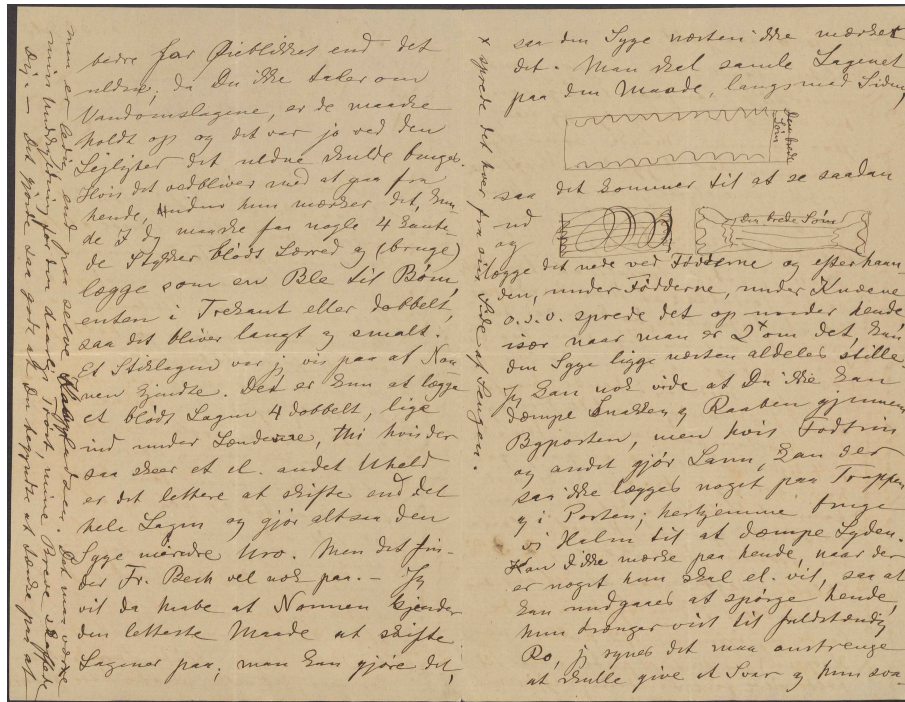 bedre for Øieblikket end det
uldne; da Du ikke taler om
Vandomslagene, er de maaske
holdt op og det var jo ved den
Leilighed det uldne skulde bruges.
Hvis det vedbliver med at gaa fra
hende, hun mærker det, kun-
de I jo maaske faa nogle 4 kante-
de Stykker blødt Lærred og (bruge)
lægge som en Ble til Børn,
enten i Trekant eller dobbelt,
saa det bliver langt og smalt.
Et Stiklagen var jeg vis paa at Non-
nen kjendte. Det er kun at lægge
et blødt Lagen 4 dobbelt, lige
ind under Lænderne, thi hvis der
saa skeer et el. andet Uheld
er det lettere at skifte end det
hele Lagen og gjør altsaa den
Syge mindre Uro. Men det fin-
der Fr. Bech vel nok paa. – Jeg
vil da haabe at Nonnen kjender
den letteste Maade at skifte
Lagener paa; man kan gjøre det,
men er bedre end paa selve
Det maa være
min Undskyldning for den daarlige Trøst mine Breve skaffede
Dig. – Det gjorde saa godt at Du begyndte at tænke paa at
saa den Syge næsten ikke mærket
det. Man skal samle Lagenet
paa den Maade, langsmed Siden,
Den brede
Søm
saa det kommer til at se saadan
ud
og
Den brede Søm
lægge det nede ved Fødderne og efterhaan-
den, under Fødderne, under Knæene
o.s.v. sprede det op under hende
især naar man er 2 x om det, kan
den Syge ligge næsten aldeles stille.
Jeg kan nok vide at Du ikke kan
dæmpe Snakken og Raaben gjennem
Byporten, men hvis Fodtrin
og andet gjør Larm, kan der
saa ikke lægges noget paa Trappen
og i Porten; herhjemme bruge
vi Halm til at dæmpe Lyden.
Kan I ikke mærke paa hende, naar der
er noget hun skal el. vil, saa at
kan undgaaes at spørge hende,
hun trænger vist til fuldstændig
Ro, jeg synes det maa anstrenge
at skulle give et Svar og hun sva-
x sprede det hver fra sin Side af Sengen.